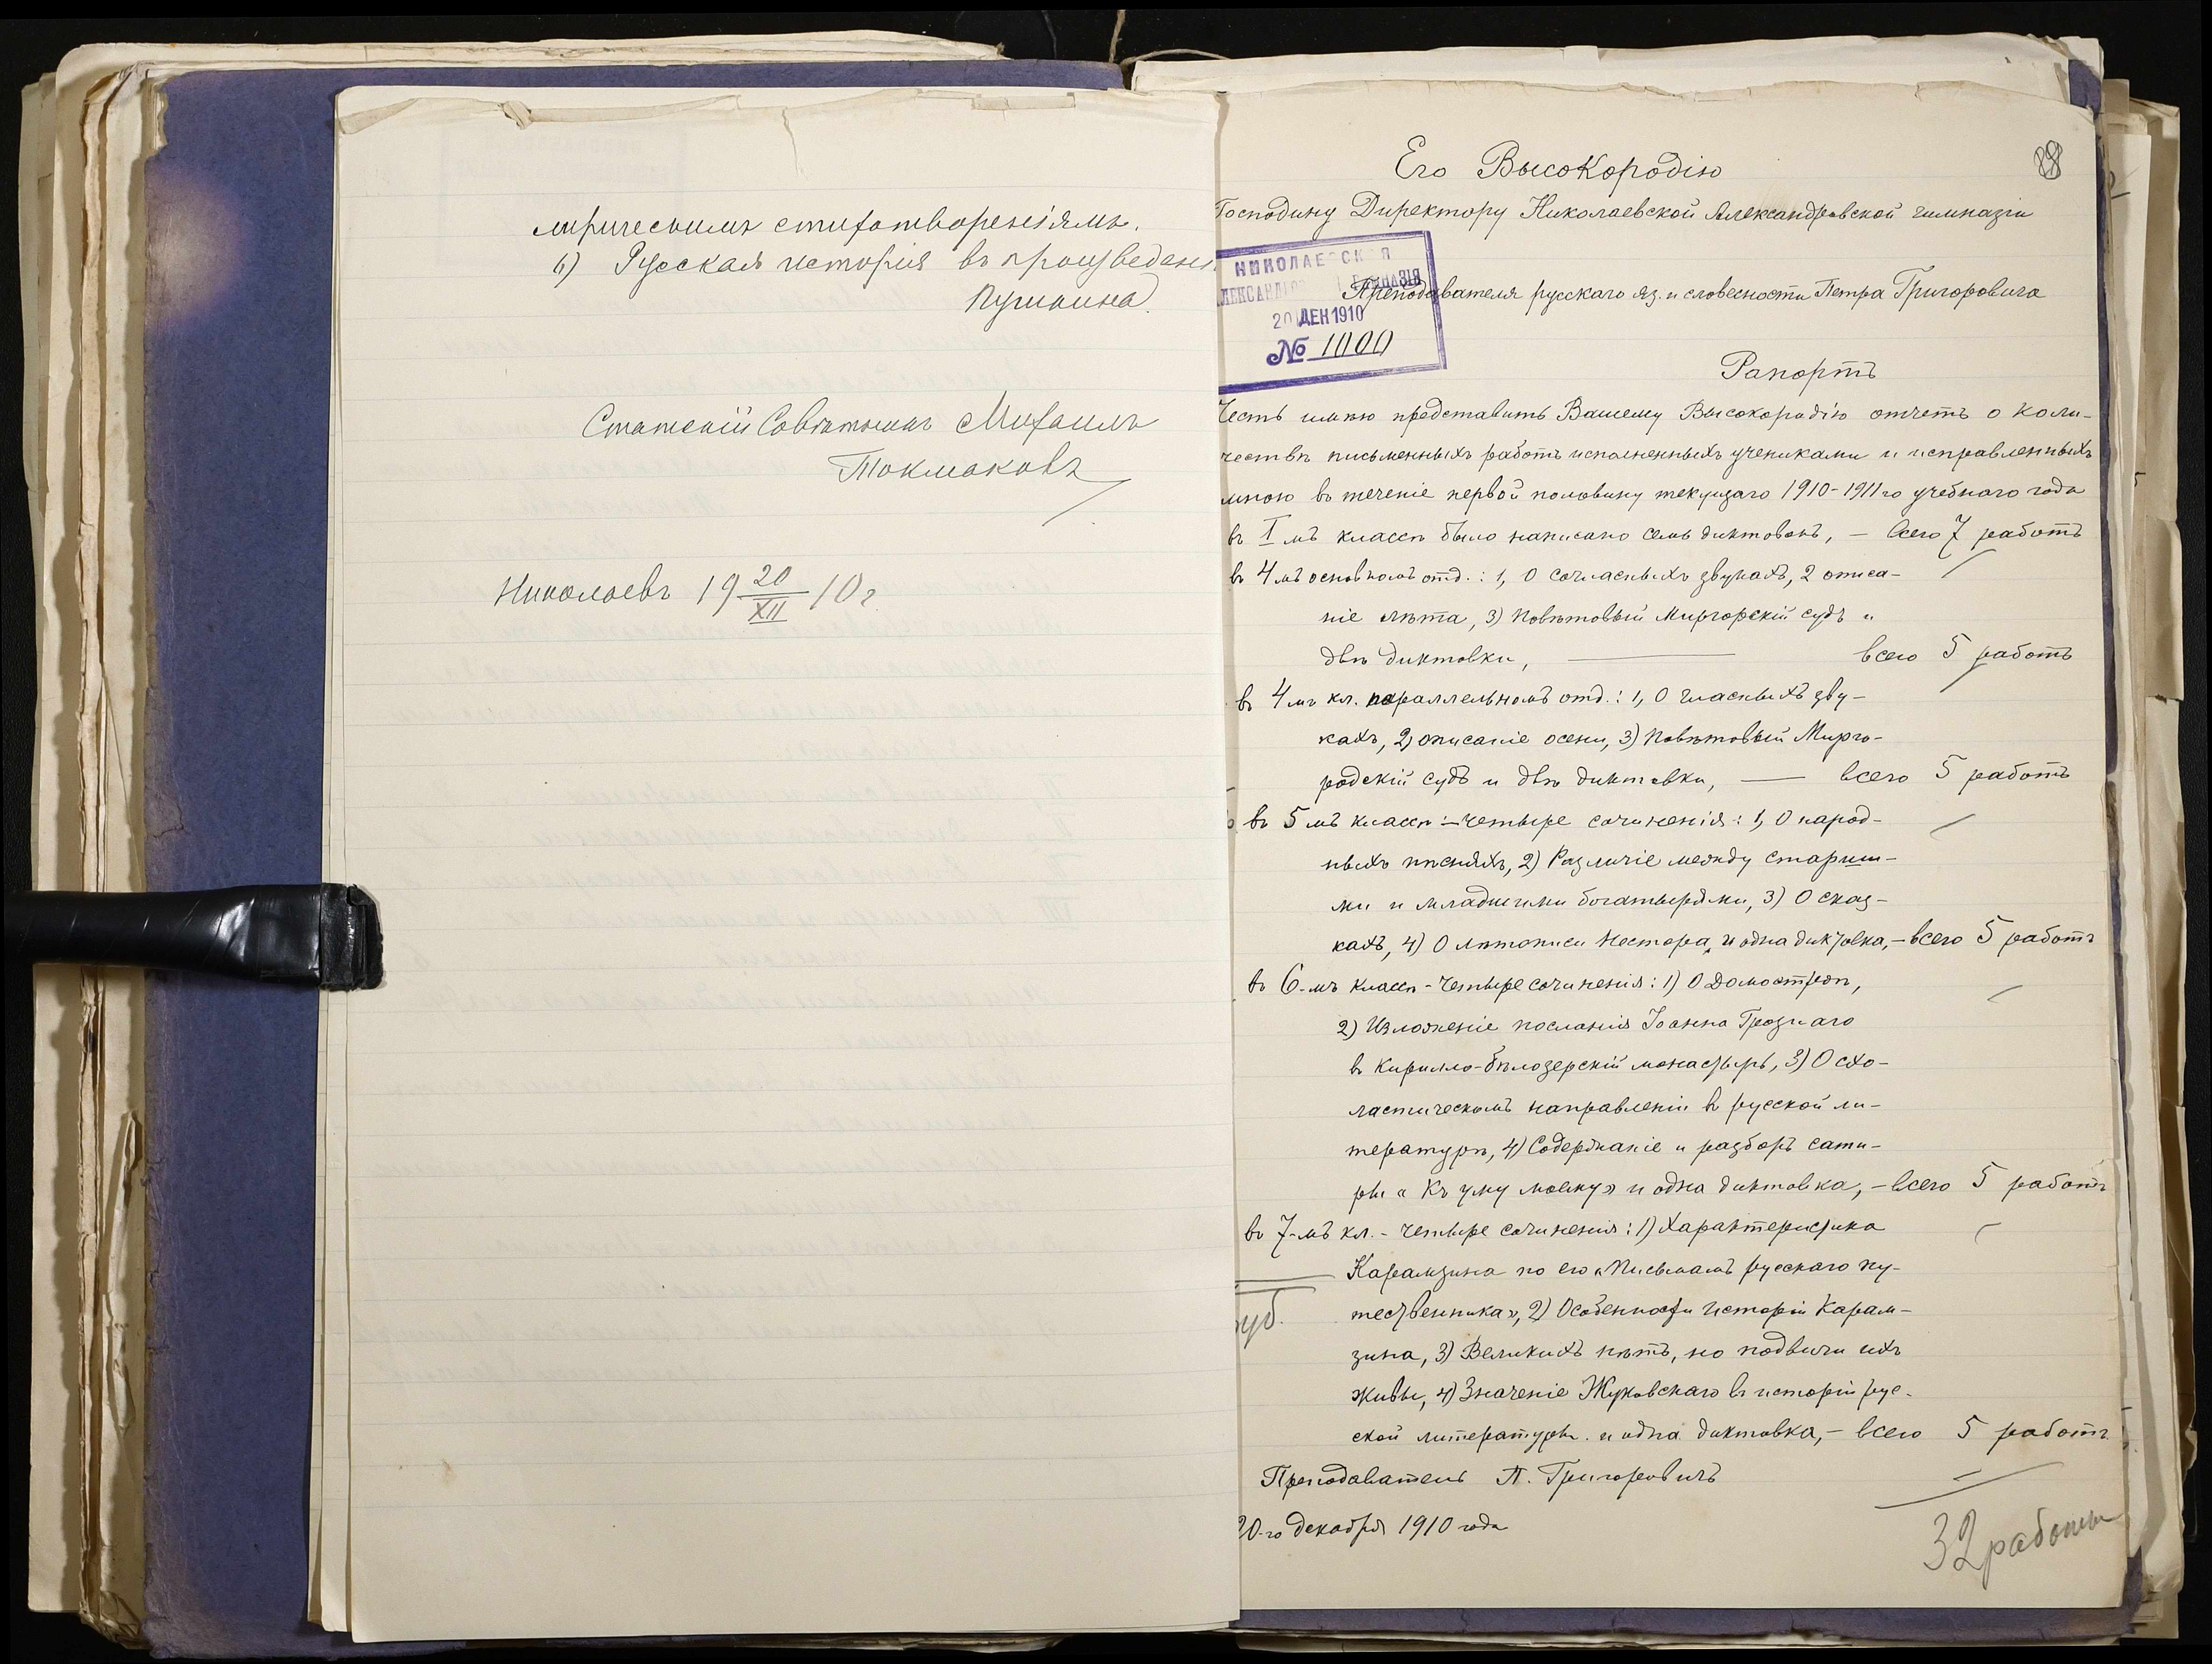 лирическимъ стихотвореніямъ.
6) Русская исторія въ произведен
Пушкина.
Статскій Совѣтникъ Михаилъ
Токмаковъ
Николаевъ 19 20/XII 10 г.
Его Высокородію
Господину Директору Николаевской Александровской гимназіи
НИКОЛАЕВСКАЯ
АЛЕКСАНДРОВСКАЯ ГИМНАЗІЯ
20 ДЕК 1910
№ 1000
Преподавателя русскаго яз. и словесности Петра Григоровича
Рапортъ
Честь имѣю представить Вашему Высокородію отчетъ о коли-
чествѣ письменныхъ работъ исполненныхъ учениками и исправленныхъ
мною въ теченіе первой половину текущаго 1910-1911 го учебнаго года
въ I мъ классѣ было написано семь диктовокъ, — всего 7 работъ
въ 4 мъ основномъ отд.: 1, О согласныхъ звукахъ, 2 описа-
ніе лѣта, 3) Повѣтовый Миргорскій судъ и
двѣ диктовки, — всего 5 работъ
въ 4 мъ кл. параллельномъ отд.: 1, О гласныхъ зву-
кахъ, 2) описаніе осени, 3) Повѣтовый Мирго-
родскій судъ и двѣ диктовки, — всего 5 работъ
въ 5 мъ классѣ — четыре сочиненія: 1, О народ-
ныхъ пѣсняхъ, 2) Различіе между старши-
ми и младшими богатырями, 3) О сказ-
кахъ, 4) О лѣтописи Нестора и одна диктовка, — всего 5 работъ
въ 6-мъ классѣ - четыре сочиненія: 1) О Домостроѣ,
2) Изложеніе посланія Іоанна Грознаго
въ Кирилло-бѣлозерскій монастырь, 3) О схо-
ластическомъ направленіи въ русской ли-
тературѣ, 4) Содержаніе и разборъ сати-
ры « Къ уму моему» и одна диктовка, — всего 5 работъ
въ 7-мъ кл. - четыре сочиненія: 1) Характеристика
Карамзина по его «Письмамъ русскаго пу-
тественника», 2) Особенности исторіи Карам-
зина, 3) Великихъ нѣтъ, но подвиги ихъ
живы, 4) Значеніе Жуковскаго въ исторіи рус-
ской литературы и одна диктовка, — всего 5 работъ
Преподаватель П. Григоровичъ
20-го декабря 1910 года
32 работы